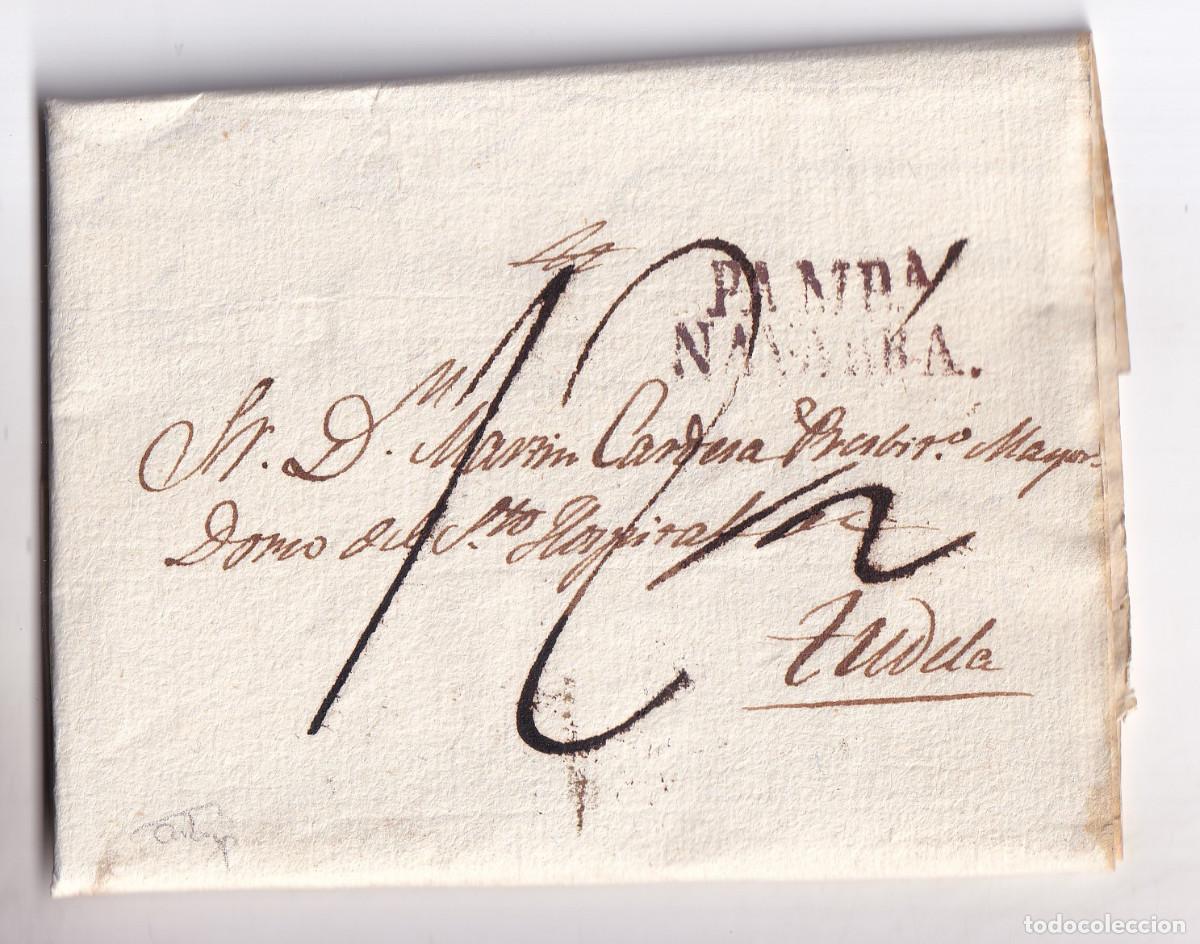 PAMPA
NAVARRA.
Sr. D.n Martin Cardona Presbit.o Mayor-
Domo del S.to Hospital de
Tudela
todocoleccion